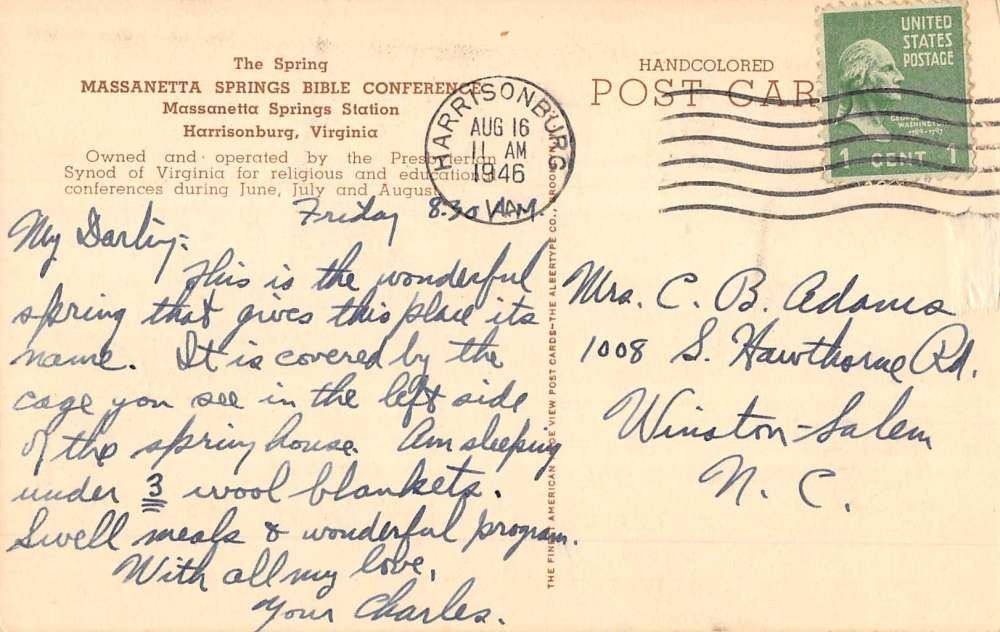 The Spring
MASSANETTA SPRINGS BIBLE CONFERENCE
Massanetta Springs Station
Harrisonburg, Virginia
Owned and operated by the Presbyterian
Synod of Virginia for religious and educational
conferences during June, July and August
Friday 8.30 A.M.
My Darling:
This is the wonderful
spring that gives this place its
name. It is covered by the
cage you see in the left side
of the spring house. Am sleeping
under 3 wool blankets.
Swell meals & wonderful program.
With all my love,
Your Charles.
HARRISONBURG
AUG 16
11 AM
1946
VA.
THE FINEST AMERICAN MADE VIEW POST CARDS—THE ALBERTYPE CO., BROOKLYN
HANDCOLORED
POST CARD
UNITED
STATES
POSTAGE
GEORGE
WASHINGTON
1789-1797
1 CENT 1
Mrs. C. B. Adams
1008 S. Hawthorne Rd.
Winston-Salem
N. C.